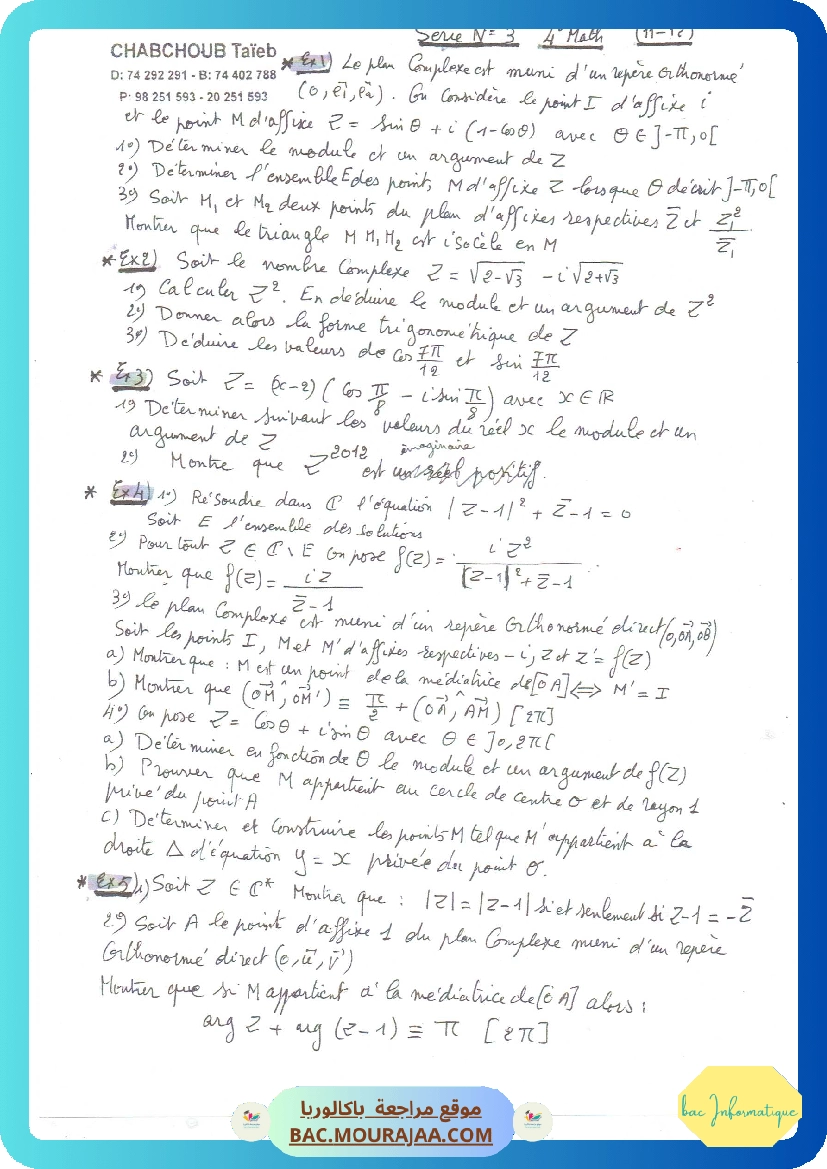 Serie N° 3 4° Math
CHABCHOUB Taïeb
D: 74 292 291 - B: 74 402 788
P: 98 251 593 - 20 251 593
* Ex1) Le plan Complexe est muni d'un repère orthonormé
(o, e⃗1, e⃗2). On Considère le point I d'affixe i
et le point M d'affixe Z = sin θ + i (1 - cos θ) avec θ ∈ ]-π, 0[
1°) Déterminer le module et un argument de Z
2°) Déterminer l'ensemble E des points M d'affixe Z lorsque θ décrit ]-π, 0[
3°) Soit M1 et M2 deux points du plan d'affixes respectives Z̄ et Z1²/Z̄1
Montrer que le triangle M M1 M2 est isocèle en M
* Ex2) Soit le nombre Complexe Z = √(2-√3) - i√(2+√3)
1°) Calculer Z². En déduire le module et un argument de Z²
2°) Donner alors la forme trigonométrique de Z
3°) Déduire les valeurs de Cos 7π/12 et sin 7π/12
* Ex3) Soit Z = (x-2) (Cos π/8 - i sin π/8) avec x ∈ ℝ
1°) Déterminer suivant les valeurs du réel x le module et un
argument de Z
2°) Montre que Z^2012 est imaginaire
* Ex4) 1°) Résoudre dans ℂ l'équation |Z-1|² + Z̄-1 = 0
Soit E l'ensemble des solutions
2°) Pour tout Z ∈ ℂ \ E On pose f(Z) = iZ² / (|Z-1|² + Z̄-1)
Montrer que f(Z) = iZ / (Z̄-1)
3°) le plan Complexe est muni d'un repère Orthonormé direct (0, OA⃗, OB⃗)
Soit les points I, M et M' d'affixes respectives -i, Z et Z' = f(Z)
a) Montrer que : M est un point de la médiatrice de [OA] ⟺ M' = I
b) Montrer que (OM⃗ ^ OM'⃗) ≡ π/2 + (OA⃗ ^ AM⃗) [2π]
4°) On pose Z = Cos θ + i sin θ avec θ ∈ ]0, 2π[
a) Déterminer en fonction de θ le module et un argument de f(Z)
b) Prouver que M appartient au cercle de centre O et de rayon 1
privé du point A
c) Déterminer et Construire les points M tel que M' appartient à la
droite Δ d'équation y = x privée du point O.
* Ex5) 1) Soit Z ∈ ℂ* Montrer que : |Z| = |Z-1| si et seulement si Z-1 = -Z̄
2°) Soit A le point d'affixe 1 du plan Complexe muni d'un repère
Orthonormé direct (o, u⃗, v⃗)
Montrer que si M appartient à la médiatrice de [OA] alors :
arg Z + arg (Z-1) ≡ π [2π]
bac Informatique
موقع مراجعة باكالوريا
BAC.MOURAJAA.COM